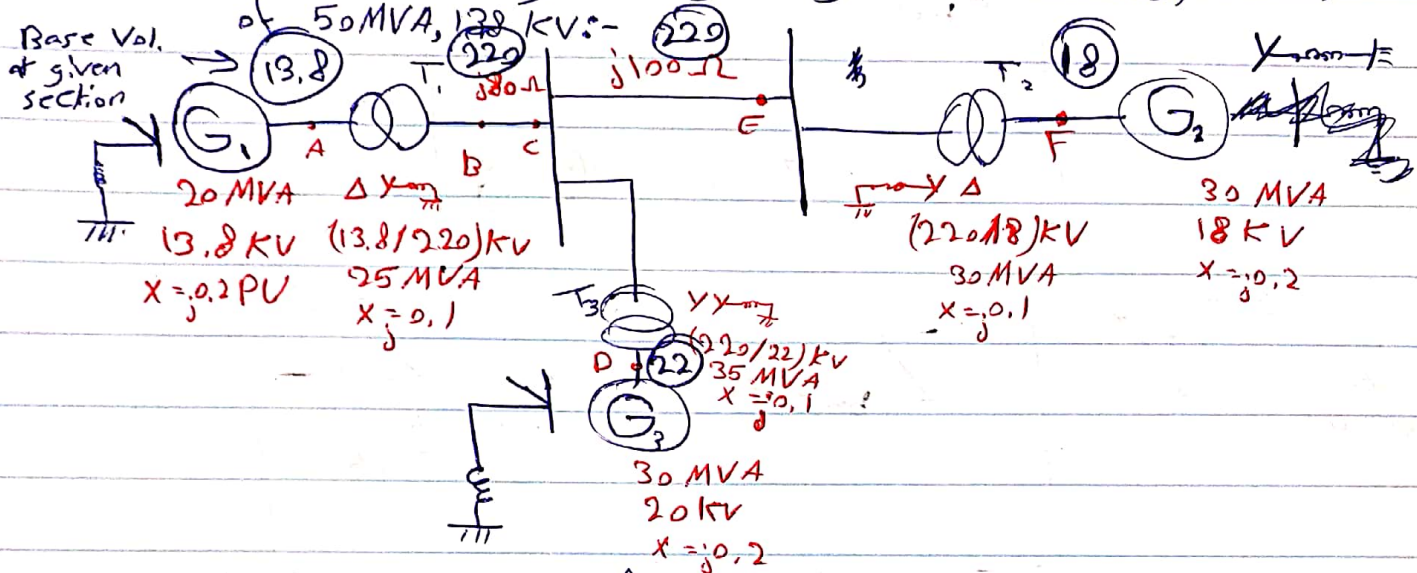 of 50 MVA, 138 KV:-
Base Vol.
of given
section
13.8
T1
220
j80Ω
220
j100Ω
T2
18
Y
G1
A
B
C
E
F
G2
20 MVA
13.8 KV
X = j0,2 PU
Δ Y
(13.8/220) KV
25 MVA
X = j0,1
Y Δ
(220/18) KV
30 MVA
X = j0,1
30 MVA
18 KV
X = j0,2
T3
YY
(220/22) KV
35 MVA
X = j0,1
D
22
G3
30 MVA
20 KV
X = j0,2